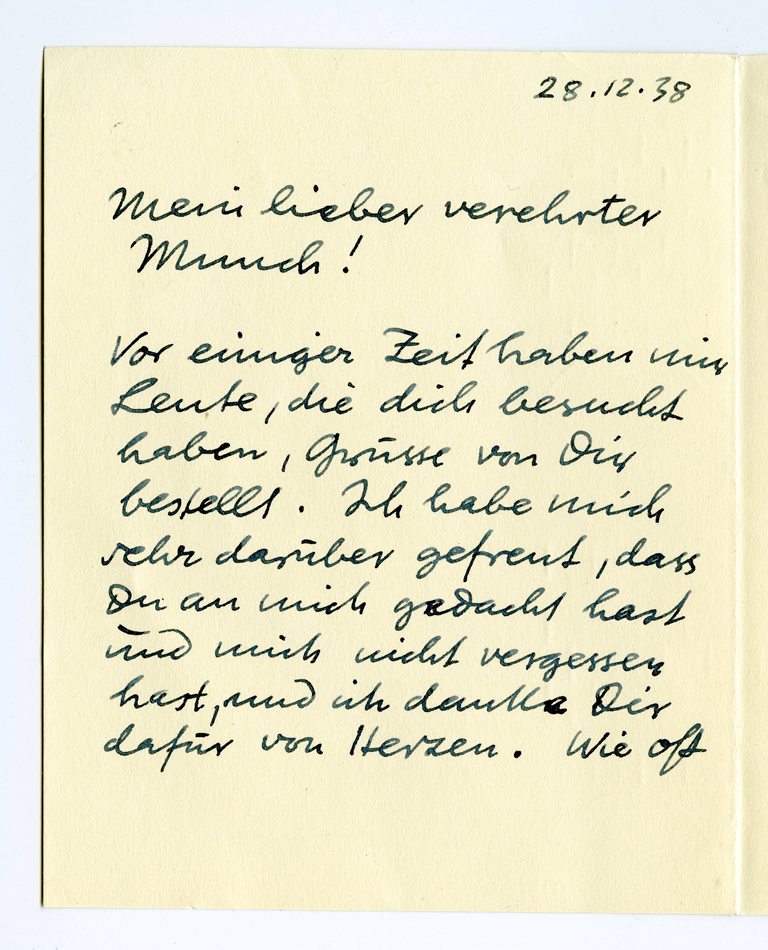 28.12.38
Mein lieber verehrter
Munch!
Vor einiger Zeit haben mir
Leute, die dich besucht
haben, Grüsse von Dir
bestellt. Ich habe mich
sehr darüber gefreut, dass
Du an mich gedacht hast
und mich nicht vergessen
hast, und ich danke Dir
dafür von Herzen. Wie oft